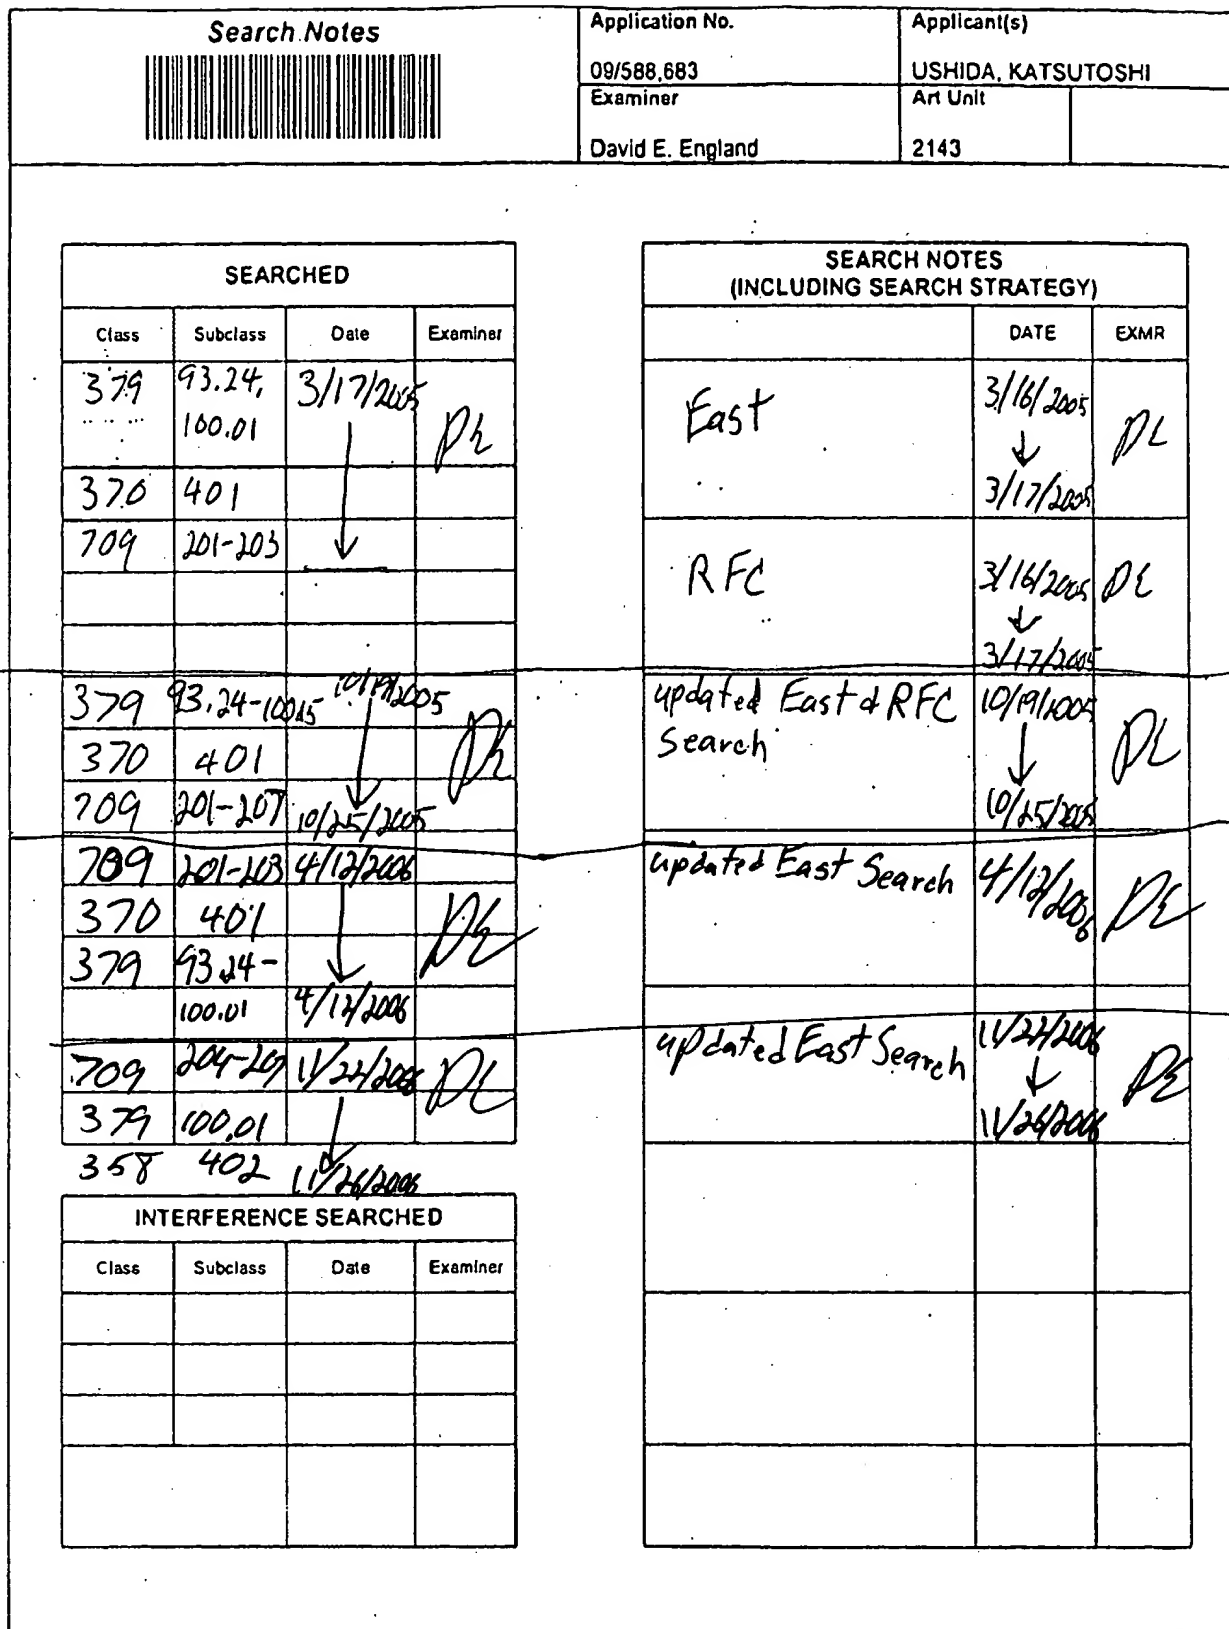 Search Notes
Application No.
Applicant(s)
09/588,683
USHIDA, KATSUTOSHI
Examiner
Art Unit
David E. England
2143
SEARCHED
Class Subclass Date Examiner
379 93.24, 3/17/2005
100.01
DE
370 401
709 201-203
379 93.24- 10/19/2005
370 401
DE
709 201-207 10/25/2005
709 201-203 4/12/2006
370 401
DE
379 93.24-
100.01 4/12/2006
709 11/22/2006 DE
379 100.01
358 402 11/26/2006
INTERFERENCE SEARCHED
Class Subclass Date Examiner
SEARCH NOTES
(INCLUDING SEARCH STRATEGY)
DATE EXMR
East 3/16/2005 DE
3/17/2005
RFC 3/16/2005 DE
3/17/2005
updated East & RFC 10/19/2005
Search DE
10/25/2005
updated East Search 4/12/2006 DE
updated East Search 11/22/2006 DE
11/26/2006